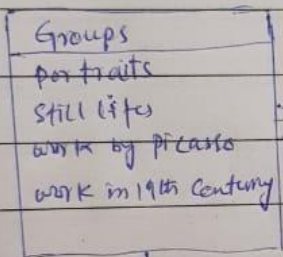 Groups
portraits
Still lifes
work by Picasso
work in 19th Century